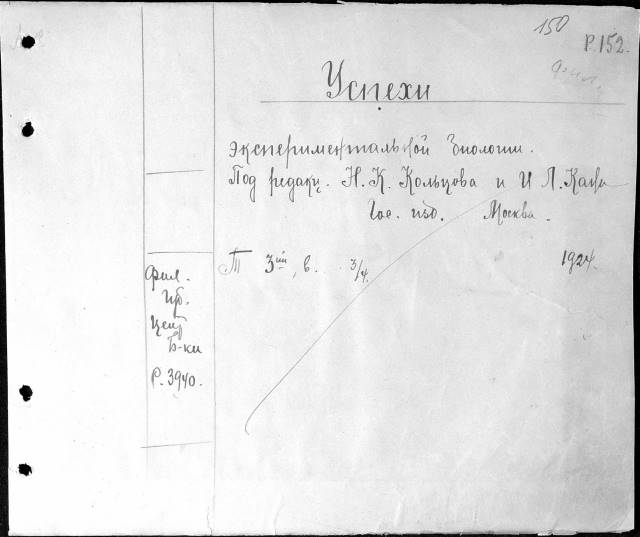 150
Р.152.
Успехи
экспериментальной биологии.
Под редакц. Н. К. Кольцова и И Л. Кана
Гос. изд. Москва.
Т 3ий, в. 3/4. 1924.
Фил.
Цб.
Б-ки
Р. 3940.